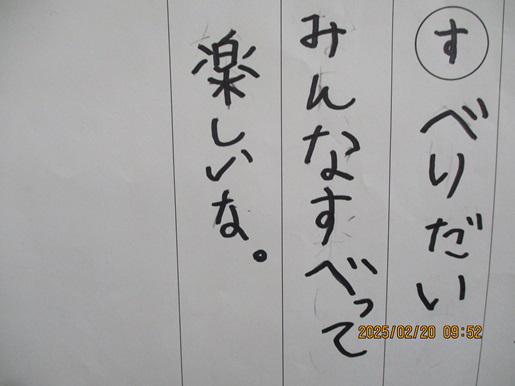 すべりだい
みんなすべって
楽しいな。
2025/02/20 09:52